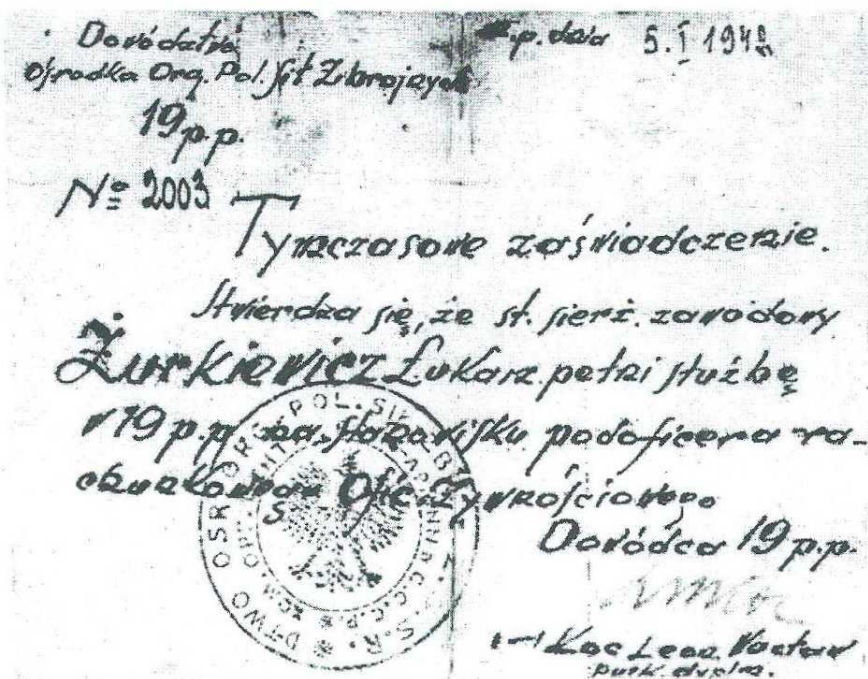 Dowództwo
Ośrodka Org. Pol. Sił Zbrojnych
19 p.p.
m.p. dnia 5. I 1942
№ 2003
Tymczasowe zaświadczenie.
Stwierdza się, że st. sierż. zawodowy
Żurkiewicz Łukasz pełni służbę
w 19 p.p. na stanowisku podoficera ra-
chunkowego Ofic. Żywnościowego
Dowódca 19 p.p.
Koc Leon Wacław
pułk. dypl.
D-TWO OŚR. ORG. POL. SIŁ ZBR. Z.S.S.R.